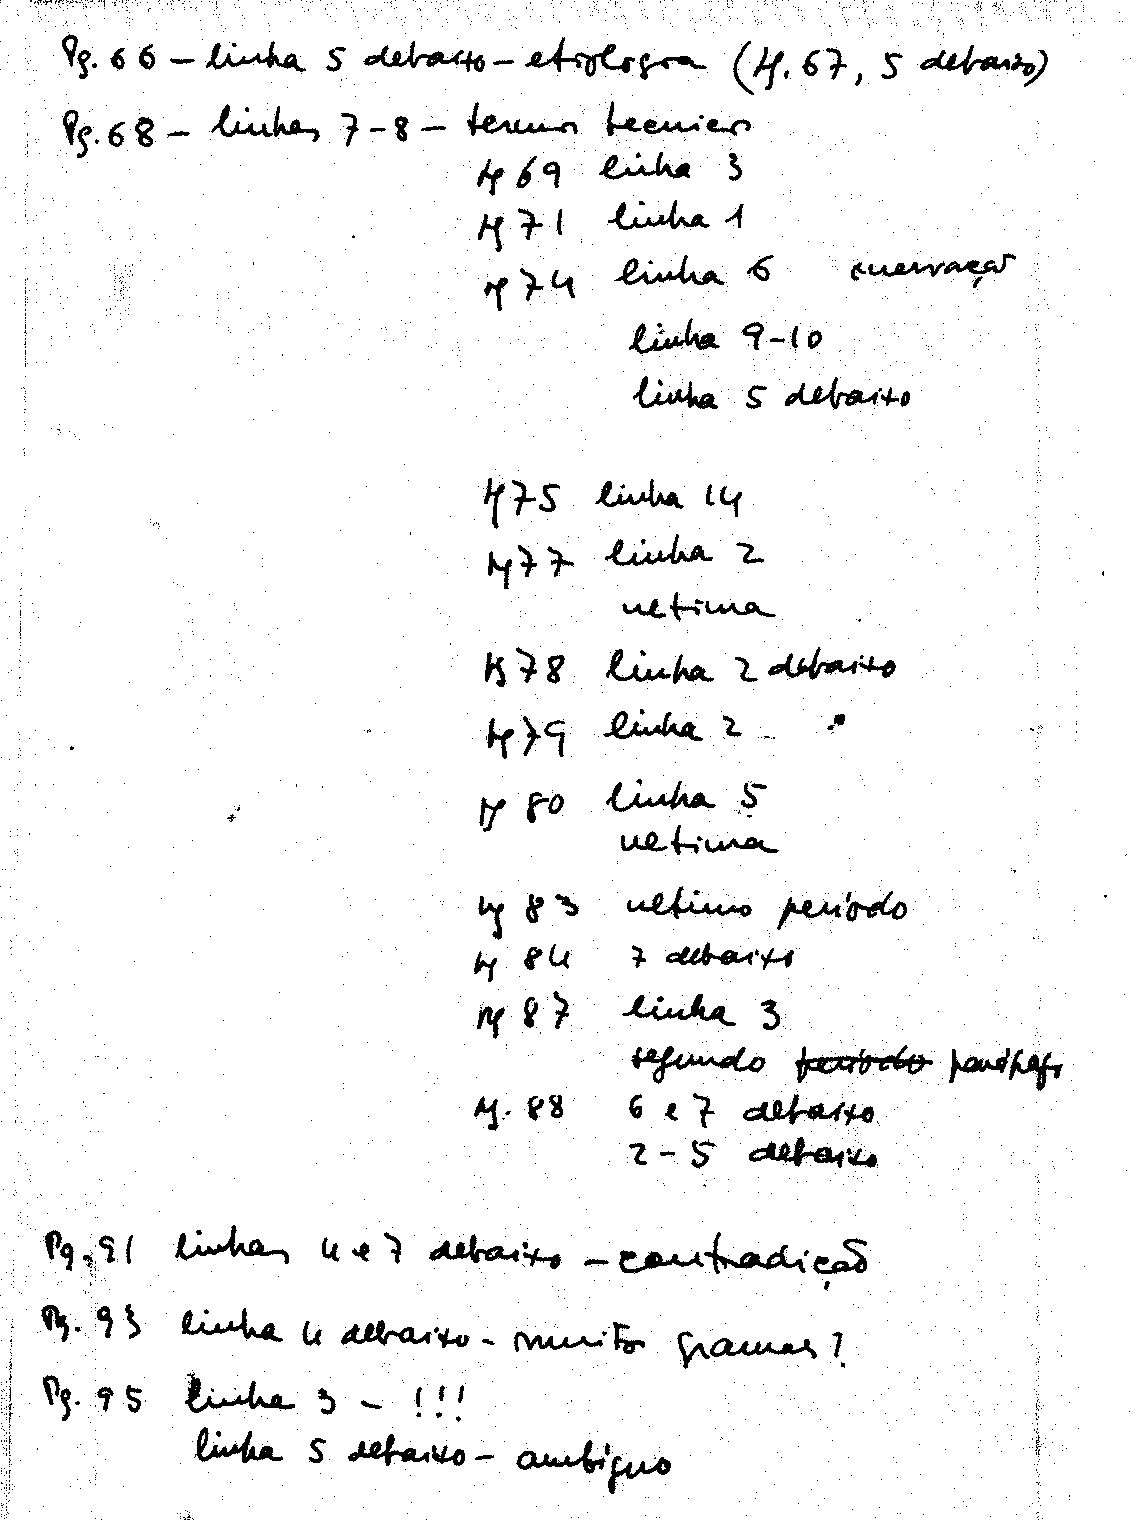 Pg. 66 – linha 5 debaixo – etiologia (pg. 67, 5 debaixo)
Pg. 68 – linhas 7-8 – termos tecnicos
pg 69 linha 3
pg 71 linha 1
pg 74 linha 6 enervação
linha 9-10
linha 5 debaixo
pg 75 linha 14
pg 77 linha 2
ultima
pg 78 linha 2 debaixo
pg 79 linha 2
pg 80 linha 5
ultima
pg 83 ultimo período
pg 84 7 debaixo
pg 87 linha 3
segundo período parágrafo
pg. 88 6 e 7 debaixo
2-5 debaixo
Pg. 91 linhas 4 e 7 debaixo – contradição
Pg. 93 linha 4 debaixo – muitos gramas?
Pg. 95 linha 3 – !!!
linha 5 debaixo – ambíguo